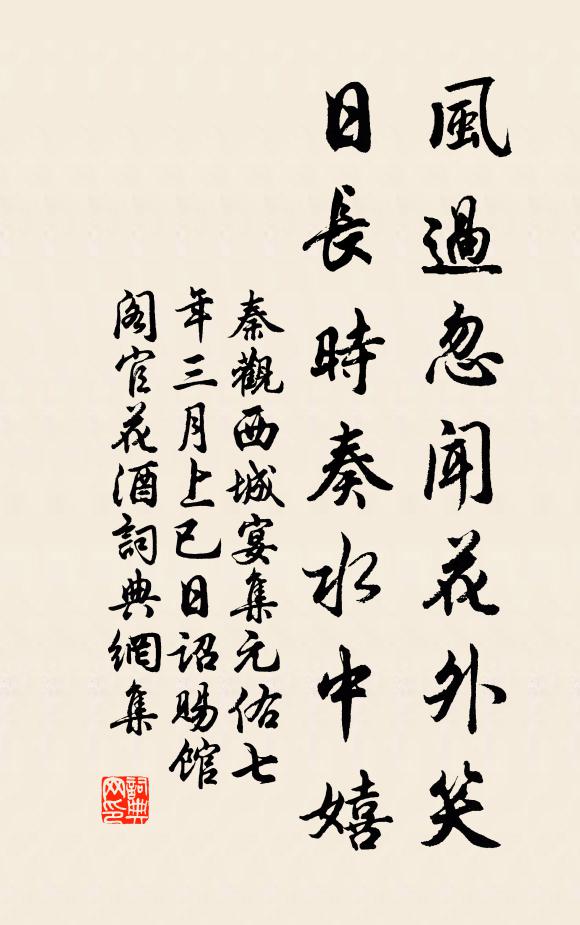 風過忽聞花外笑
日長時奏水中嬉
秦觀西城宴集元佑七
年三月上巳日詔賜館
閣官花酒詞典網集
詞典網印